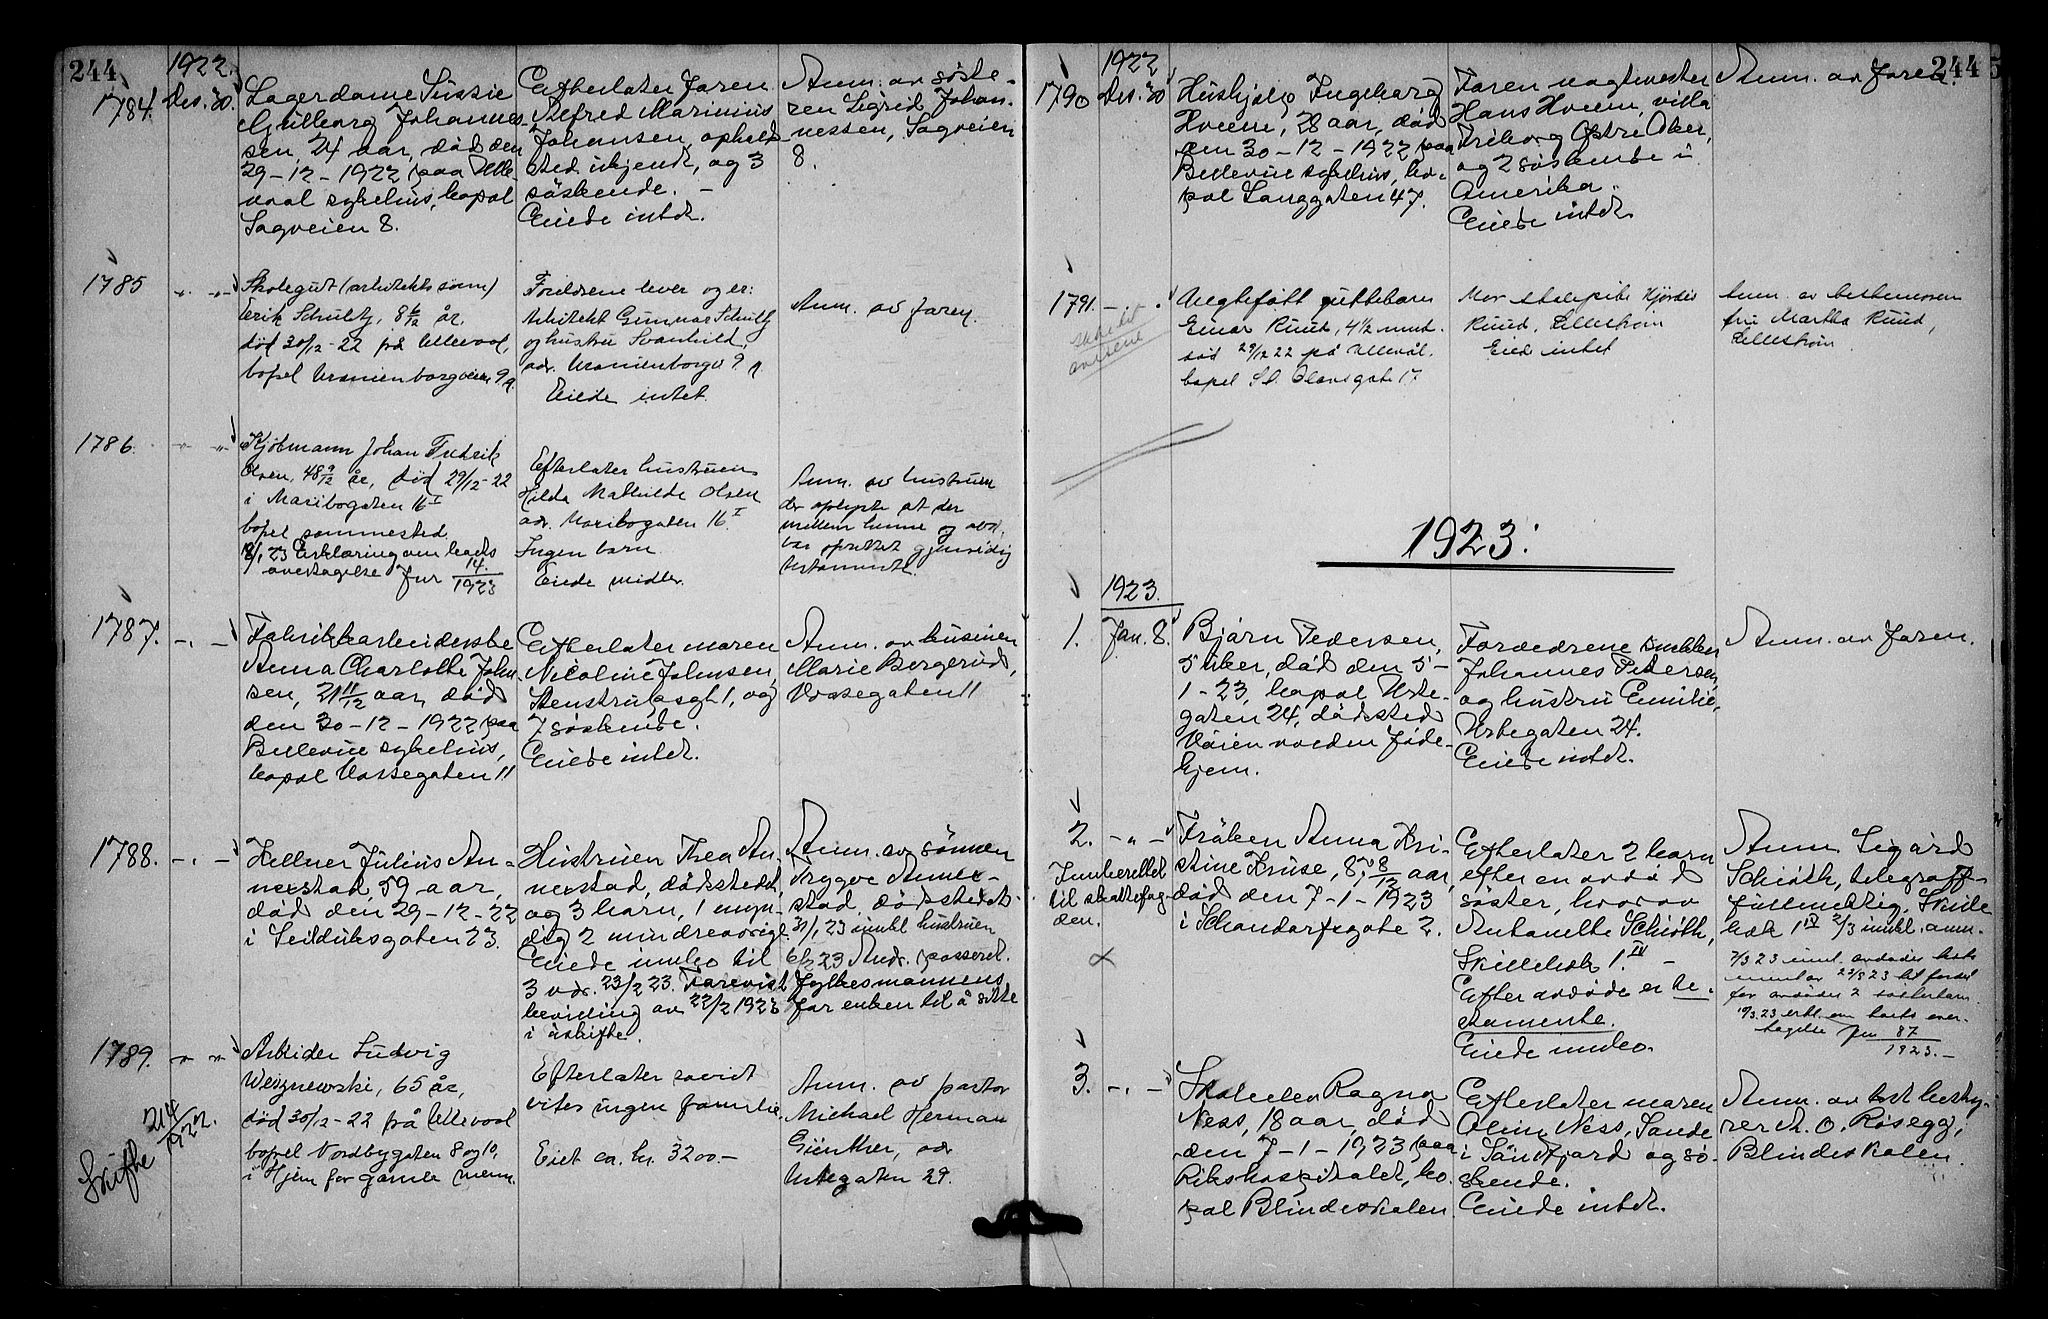 244
1922.
1784. Des. 30.
Lagerdame Sussie
Gullborg Johannes-
sen, 24 aar, död den
29-12-1922 paa Ulle-
vaal sykehus, bopæl
Sagveien 8.
Efterlater faren
Alfred Marinius
Johansen, opholds-
sted ukjendt, og 3
söskende. -
Eiede intet.
Anm. av söste-
ren Sigrid Johan-
nessen, Sagveien
8.
1785 -"- -"-
Skolegut (arkitekts sönn)
Erik Schultz, 8 6/12 år,
död 30/12-22 på Ullevaal,
bopel Uranienborgveien 9
Foreldrene lever og er:
Arkitekt Gunnar Schultz
og hustru Svanhild,
adr. Uranienborgv 9
Eiede intet.
Anm. av faren.
1786. -"- -"-
Kjöbmann Johan Fredrik
Olsen, 48 9/12 år, död 29/12-22
i Maribogaten 16 I
bopel sammested.
18/1 23 Erklæring om boets
overtagelse Jnr 14/1923
Efterlater hustruen
Hilda Mathilde Olsen
adr. Maribogaten 16 I
Ingen barn
Eiede midler.
Anm. av hustruen
der oplyste at der
mellem henne og avd.
var oprettet gjensidig
testamente.
1787. -"- -
Fabrikkarbeiderske
Anna Charlotte John-
sen, 21 11/12 aar, död
den 30-12-1922 paa
Bellevue sykehus,
bopæl Vossegaten 11
Efterlater moren
Nicoline Johnsen,
Stenstrupsgt 1, og
7 söskende.
Eiede intet.
Anm. av kusinen
Marie Borgerud,
Vossegaten 11
1788. -"- -
Kellner Julius An-
nexstad, 59 aar,
död den 29-12-22
i Seilduksgaten 23.
Hustruen Thea An-
nexstad, dödsstedet,
og 3 barn, 1 myn-
dig 2 mindreaarige.
Eiede midler til
3 vdr. 23/2 23. Forevist
bevilling av 22/2 1923
i uskifte.
Anm. av sönnen
Trygve Annex-
stad, dödsstedet.
31/1 23 innkl hustruen
6/2 23 Andr. passeret.
Fylkesmannens
for enken til å sitte
1789. -"- -"-
Arbeider Ludvig
Weiznewski, 65 år,
död 30/12-22 på Ullevaal
bopel Nordbygaten 8 og 10,
i Hjem for gamle menn.
Skifte 214/1922.
Efterlater savidt
vites ingen familie.
Eiet ca. kr. 3200.-
Anm. av pastor
Michael Herman
Günther, adr
Urtegaten 29.
244
1922
1790 Des. 30
Hushjelp Ingeborg
Hveem, 28 aar, död
den 30-12-1922 paa
Bellevue sykehus, bo-
pæl Langgaten 47.
Faren vagtmester
Hans Hveem, villa
Friborg Östre Aker,
og 2 söskende i
Amerika.
Eiede intet.
Anm. av faren.
1791. - "
Uegtefött guttebarn
Einar Ruud, 4 1/2 mnd.
död 29/12 22 på Ullevål.
bopel St. Olavsgate 17
Mor skolepike Hjördis
Ruud, Lilleström
Eied intet
Anm. av bestemoren
fru Martha Ruud,
Lilleström
1923.
1923.
1. Jan. 8.
Björn Pedersen,
5 uker, död den 5-
1-23, bopæl Urte-
gaten 24, dödssted
Vöienvolden Föde-
hjem.
Foreldrene snekker
Johannes Pedersen,
og hustru Emilie,
Urtegaten 24.
Eiede intet.
Anm. av faren.
2. -"-
Innberettet
til skattefog-
den.
x
Fröken Anna Kri-
stine Kruse, 87 8/12 aar,
död den 7-1-1923
i Schandorfsgate 2.
Efterlater 2 barn
efter en avdöd
söster, hvorav
Antonette Schiöth,
Skillebek 1. IV -
Efter avdöde er te-
stamente.
Eiede midler.
Anm. Sigurd
Schiöth, telegraf-
fullmektig, Skille-
bæk 1 IV 2/3 innkl. anm.
10/3.23 erkl. om boets over-
tagelse Jnr 87
1923.-
3. -"-
Skoleelev Ragna
Ness, 18 aar, död
den 7-1-1923 paa
Rikshospitalet, bo-
pæl Blindeskolen
Efterlater moren
Oline Ness, Sande
i Söndfjord og sö-
skende.
Eiede intet.
Anm. av besty-
rer O. Rosegg,
Blindeskolen.